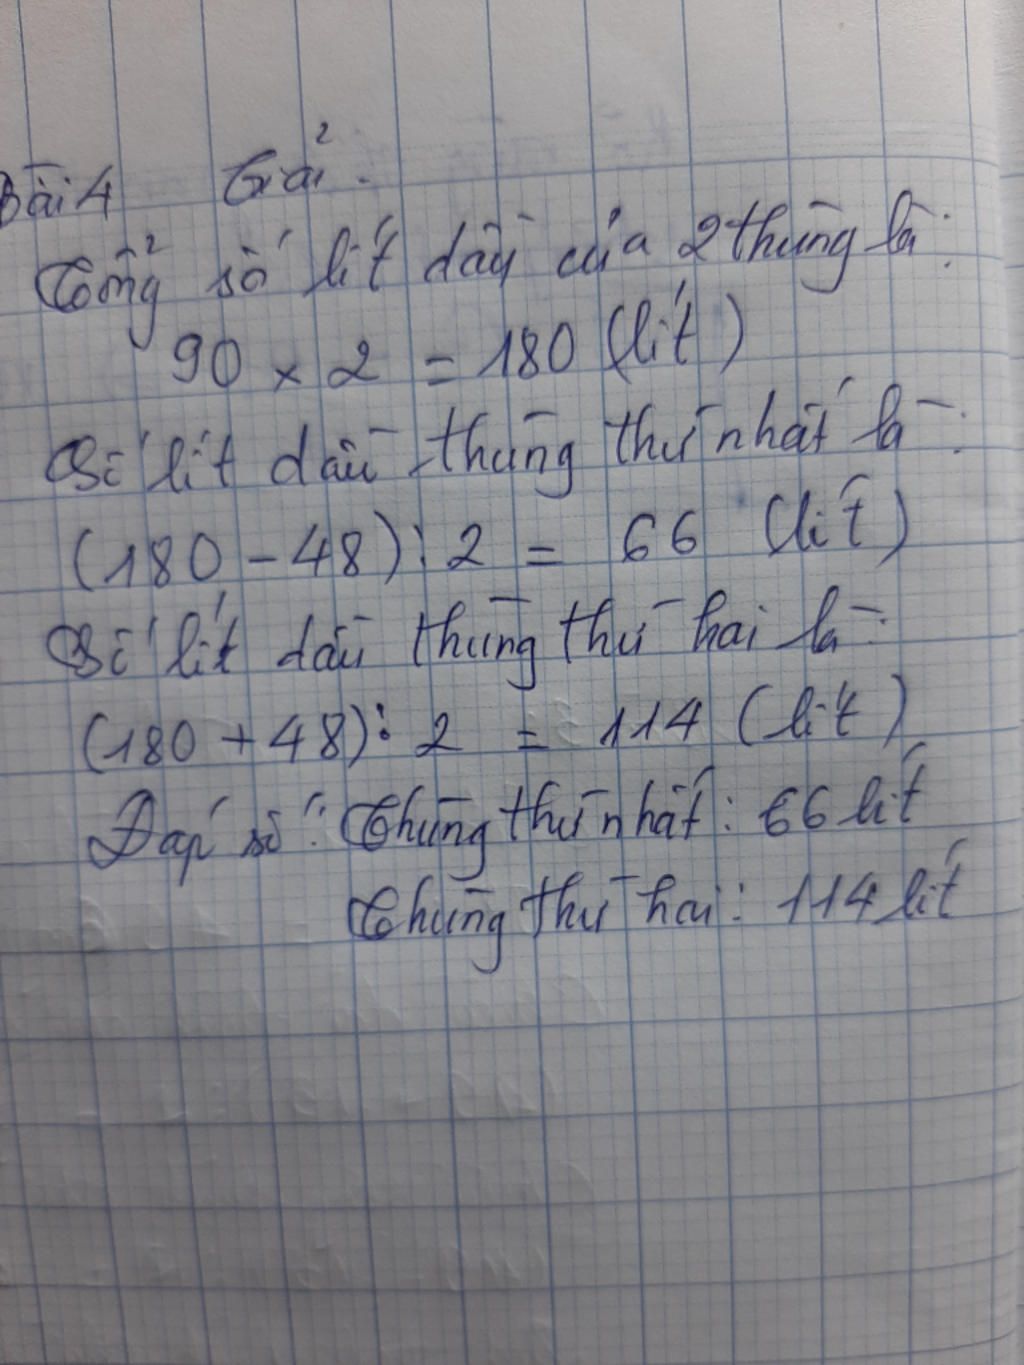 Bài 4 Giải.
Tổng số lít dầu của 2 thùng là:
90 x 2 = 180 (lít)
Số lít dầu thùng thứ nhất là:
(180 - 48) : 2 = 66 (lít)
Số lít dầu thùng thứ hai là:
(180 + 48) : 2 = 114 (lít)
Đáp số: Thùng thứ nhất: 66 lít
Thùng thứ hai: 114 lít